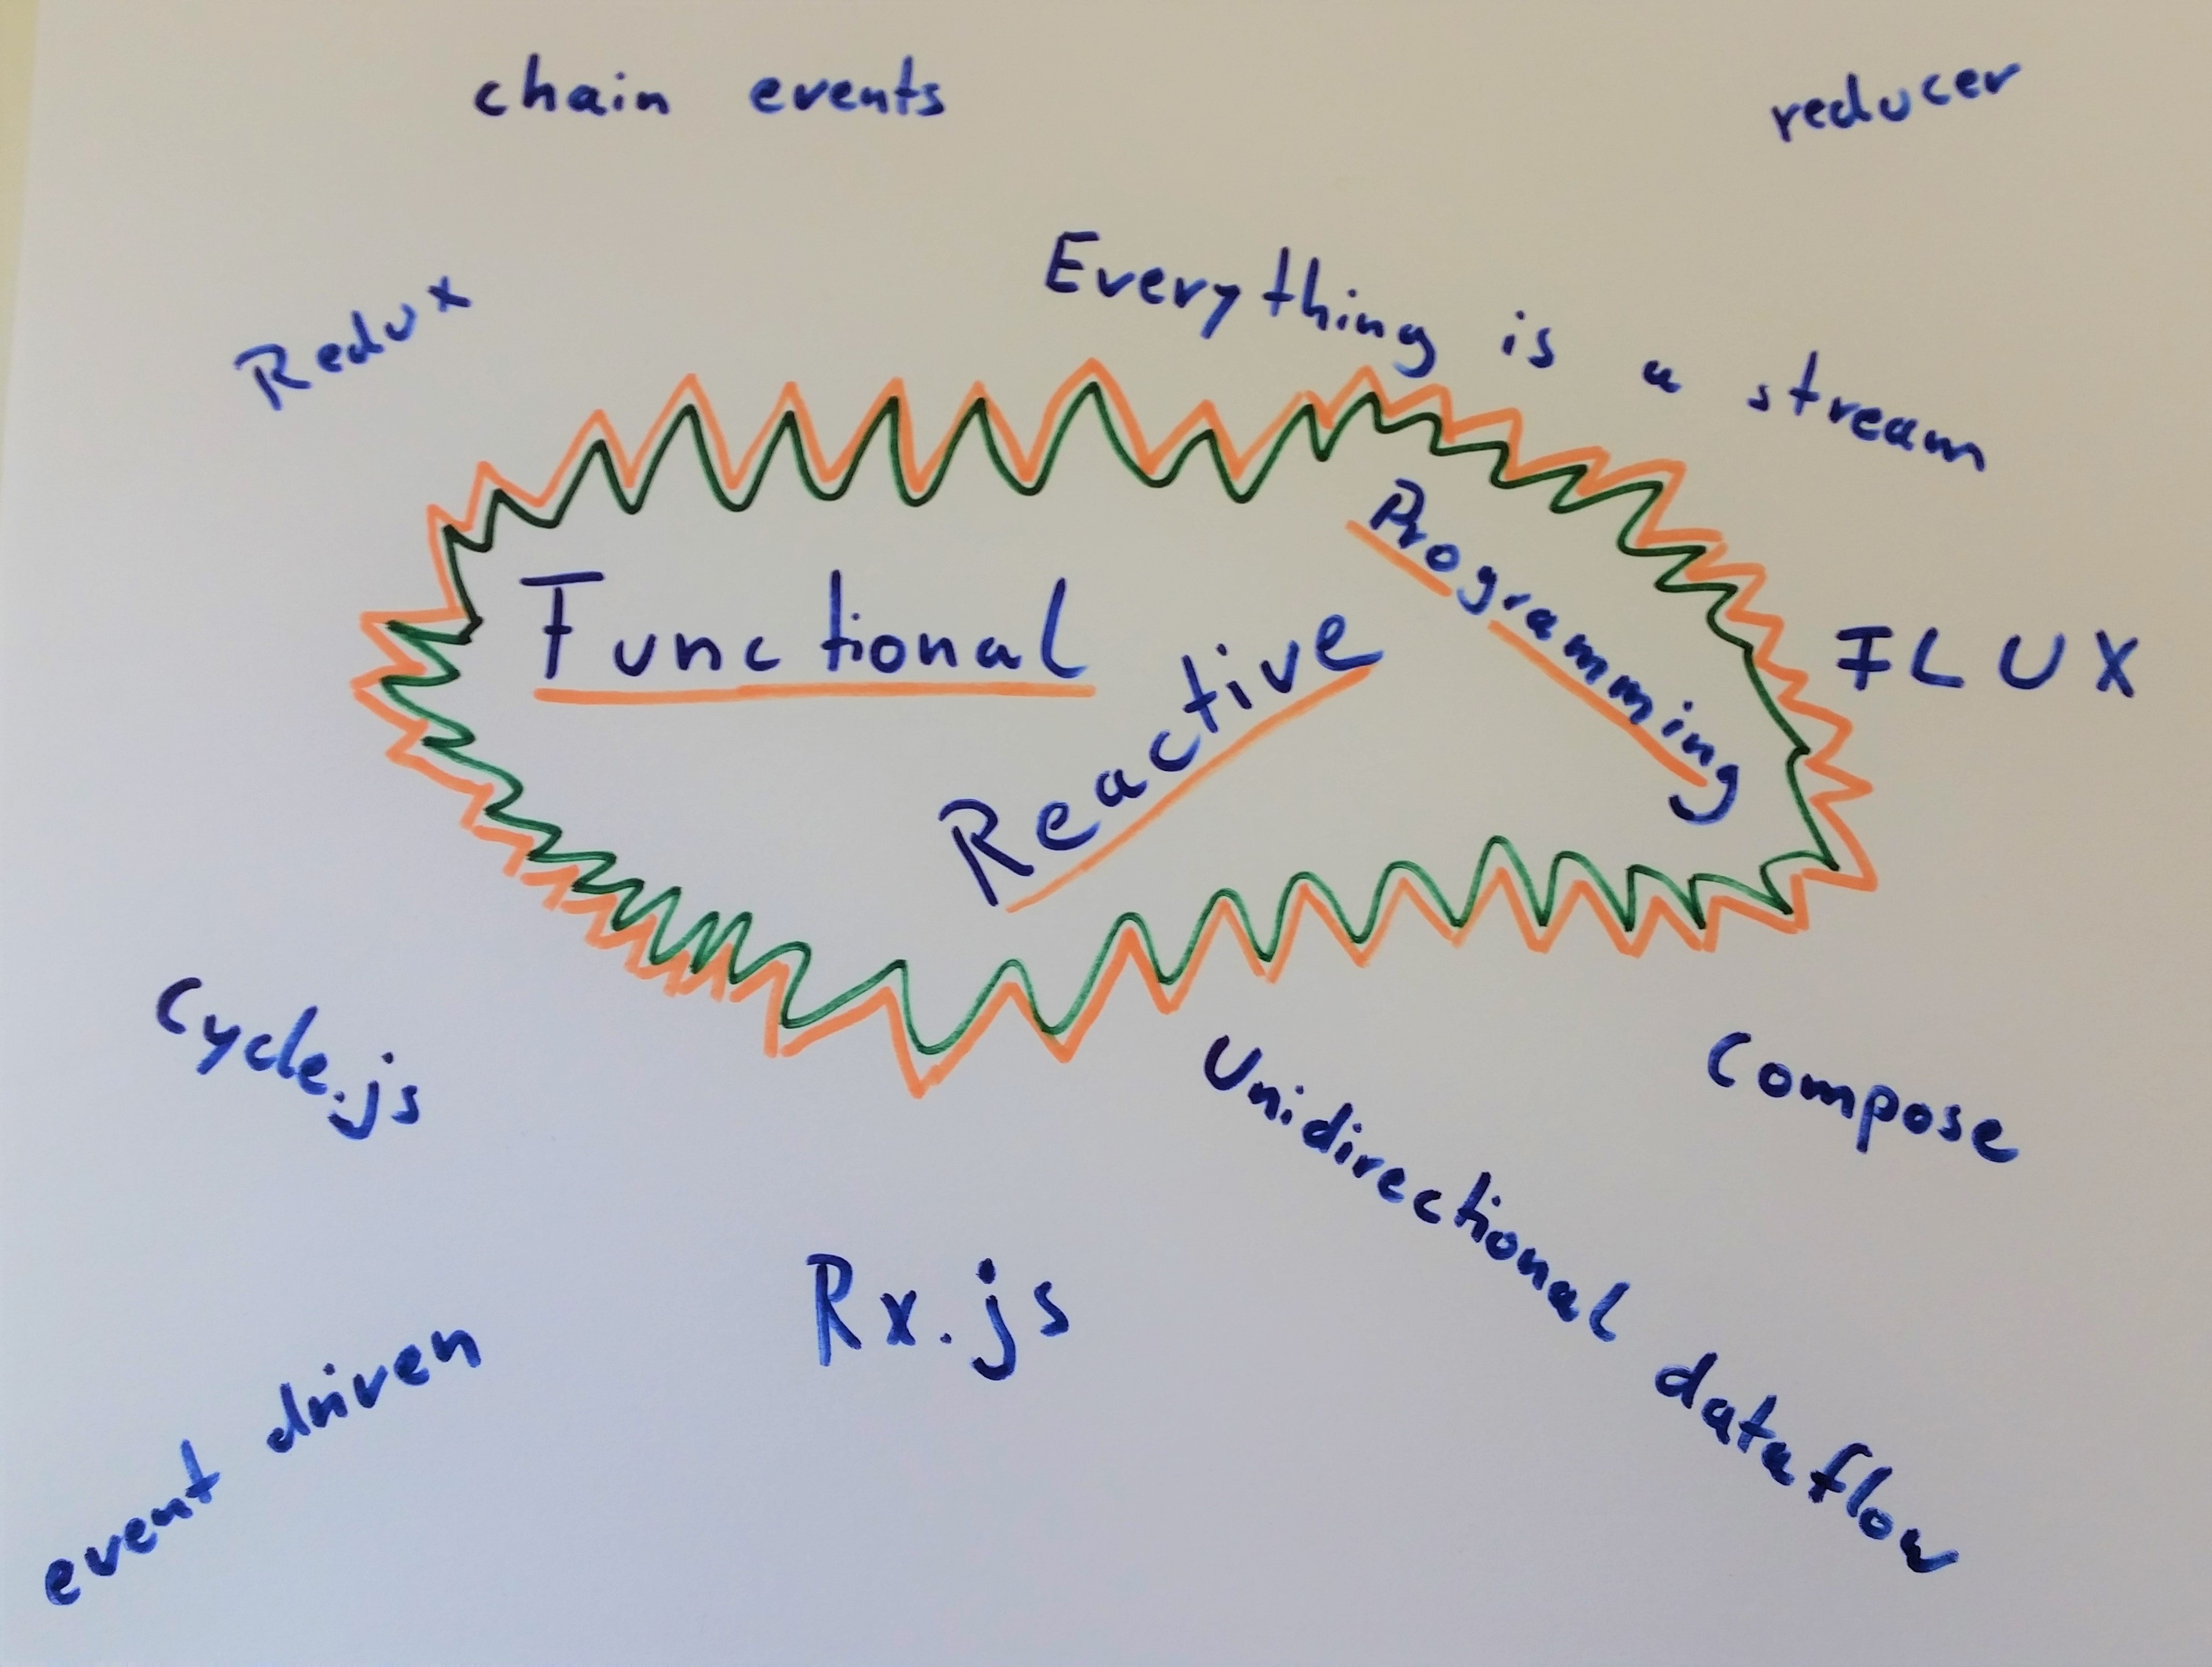 chain events
reducer
Redux
Everything is a stream
Functional
Reactive
Programming
FLUX
Cycle.js
Compose
Unidirectional dataflow
Rx.js
event driven